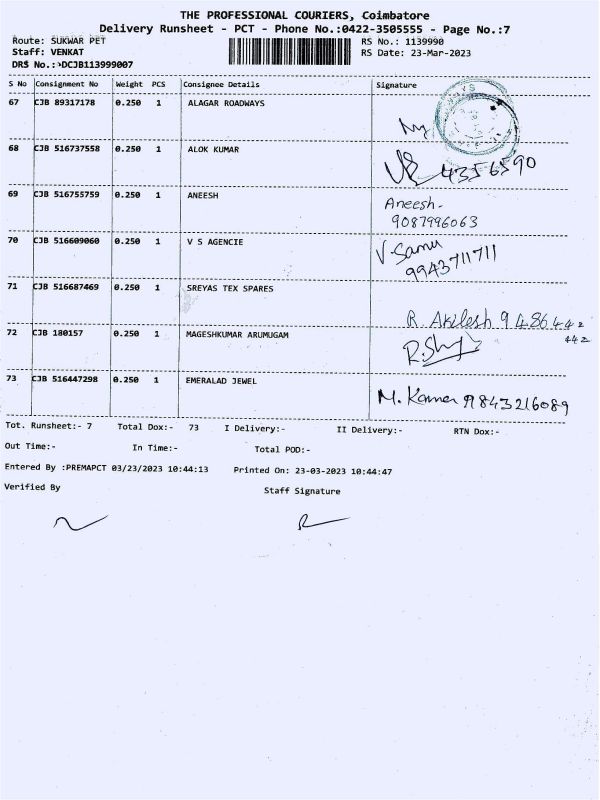 THE PROFESSIONAL COURIERS, Coimbatore
Delivery Runsheet - PCT - Phone No.:0422-3505555 - Page No.:7
Route: SUKWAR PET
RS No.: 1139990
Staff: VENKAT
RS Date: 23-Mar-2023
DRS No.:>DCJB113999007
S No Consignment No Weight PCS Consignee Details Signature
67 CJB 89317178 0.250 1 ALAGAR ROADWAYS
68 CJB 516737558 0.250 1 ALOK KUMAR
4356590
69 CJB 516755759 0.250 1 ANEESH Aneesh-
9087996063
70 CJB 516609060 0.250 1 V S AGENCIE V.Samu
9943711711
71 CJB 516687469 0.250 1 SREYAS TEX SPARES
R. Akilesh 9486442
442
72 CJB 180157 0.250 1 MAGESHKUMAR ARUMUGAM
73 CJB 516447298 0.250 1 EMERALAD JEWEL
M. 9843216089
Tot. Runsheet:- 7 Total Dox:- 73 I Delivery:- II Delivery:- RTN Dox:-
Out Time:- In Time:- Total POD:-
Entered By :PREMAPCT 03/23/2023 10:44:13 Printed On: 23-03-2023 10:44:47
Verified By Staff Signature